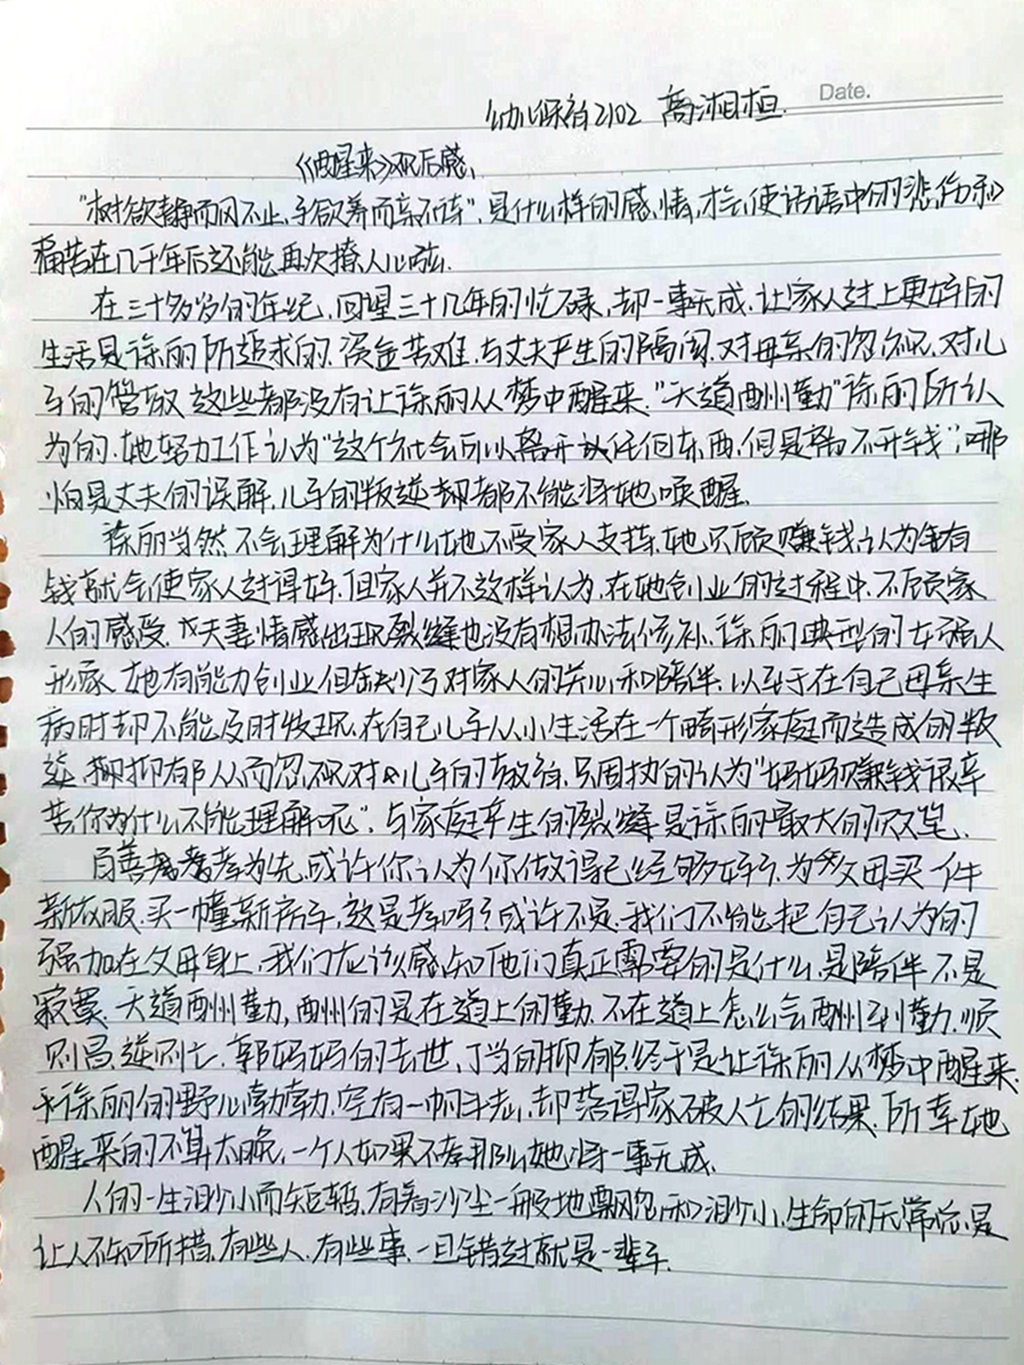 幼儿保育2102 高湘桓
Date.
《醒来》观后感
"树欲静而风不止,子欲养而亲不待",是什么样的感情,才会使话语中的悲伤和
痛苦在几千年后还能再次撩人心弦.
在三十多岁的年纪,回望三十几年的忙碌,却一事无成.让家人过上更好的
生活是徐丽所追求的.资金苦难.与丈夫产生的隔阂.对母亲的忽视.对儿
子的管教 这些都没有让徐丽从梦中醒来."天道酬勤"徐丽所认
为的.她努力工作认为"这个社会可以离开任何东西,但是离不开钱",哪
怕是丈夫的误解.儿子的叛逆却都不能将她唤醒.
徐丽当然不会理解为什么她不受家人支持.她只顾赚钱,认为有
钱就会使家人过得好.但家人并不这样认为.在她创业的过程中.不顾家
人的感受.夫妻情感出现裂缝也没有想办法修补.徐丽典型的女强人
形象 她有能力创业但缺少了对家人的关心和陪伴.以至于在自己母亲生
病时却不能及时发现.在自己儿子从小生活在一个畸形家庭而造成的叛
逆 抑郁从而忽视对儿子的教育.只固执的认为"妈妈赚钱很辛
苦你为什么不能理解呢".与家庭产生的裂缝是徐丽最大的败笔.
百善孝为先.或许你认为你做得已经够好了.为父母买一件
新衣服.买一幢新房子,这是孝吗?或许不是.我们不能把自己认为的
强加在父母身上.我们应该感知他们真正需要的是什么.是陪伴 不是
寂寞.天道酬勤,酬的是在道上的勤.不在道上怎么会酬到勤.顺
则昌逆则亡.郭妈妈的去世.丁当的抑郁.终于是让徐丽从梦中醒来.
徐丽的野心勃勃.空有一帆斗志,却落得家破人亡的结果.所幸她
醒来的不算太晚.一个人如果不孝那么她将一事无成.
人的一生渺小而短暂.有着沙尘一般地飘忽和渺小.生命的无常总是
让人不知所措.有些人.有些事.一旦错过就是一辈子.